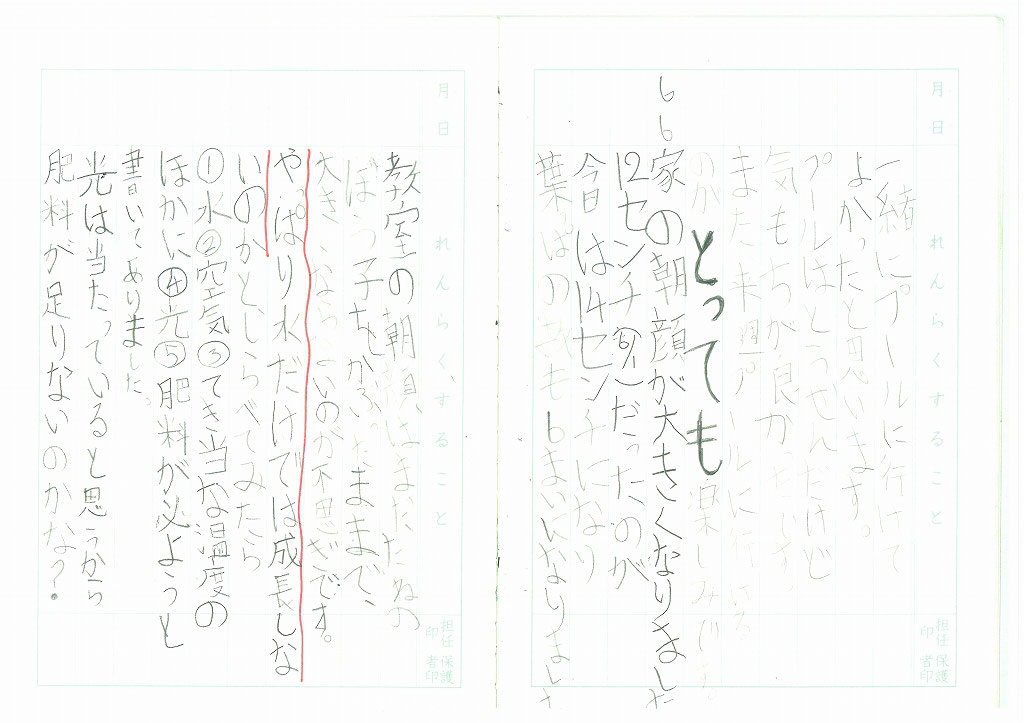 月 日
れんらくすること
担任印
保護者印
一緒にプールに行けて
よかったと思います。
プールはとうぜんだけど
気もちが良かったです。
また来週プールに行ける
のがとっても楽しみです。
6 6
家の朝顔が大きくなりました
12センチ(6/1)だったのが
今日は14センチになり
葉っぱの数も6まいになりました
月 日
れんらくすること
担任印
保護者印
教室の朝顔はまだ、たねの
ぼう子をかぶったままで、
大きくならないのが不思ぎです。
やっぱり水だけでは成長しな
いのかとしらべてみたら
①水②空気③てき当な温度の
ほかに④光⑤肥料が必ようと
書いてありました。
光は当たっていると思うから
肥料が足りないのかな?